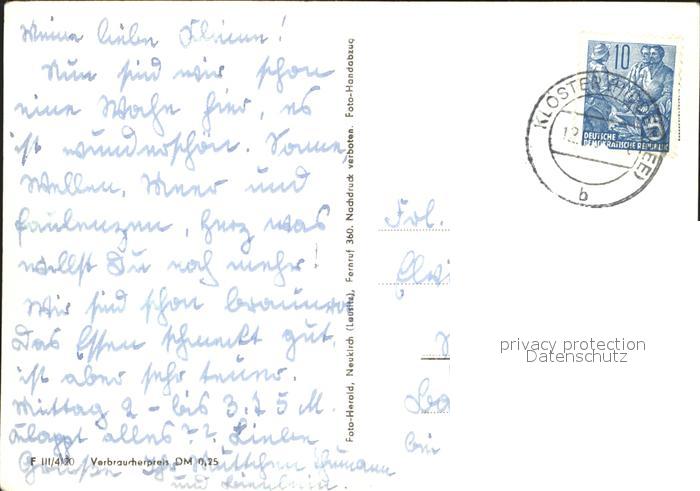 Meine liebe
Nun sind wir schon
eine Woche hier, es
ist wunderschön. Sonne,
Wellen, Meer und
faulenzen, Herz was
willst Du noch mehr!
Wir sind schon
Das Essen schmeckt gut,
ist aber sehr teuer.
Mittag 2 - bis 3.75 M.
Klappt alles?? Liebe
Grüsse
und
Foto-Herold, Neukirch (Lausitz), Fernruf 360. Nachdruck verboten. Foto-Handabzug
F III/4/20 Verbraucherpreis DM 0,25
10
DEUTSCHE
DEMOKRATISCHE REPUBLIK
KLOSTER
b
Frl.
privacy protection
Datenschutz